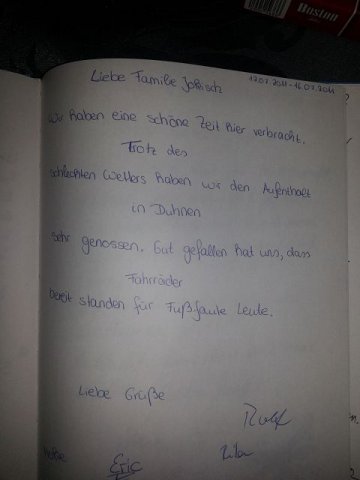 Bastna
Liebe Familie Jokisch 12.07.2011-16.07.2011
wir haben eine schöne Zeit hier verbracht.
Trotz des
schlechten Wetters haben wir den Aufenthalt
in Duhnen
sehr genossen. Gut gefallen hat uns, dass
Fahrräder
bereit standen für Fußfaule Leute.
Liebe Grüße
Rolf
Eric